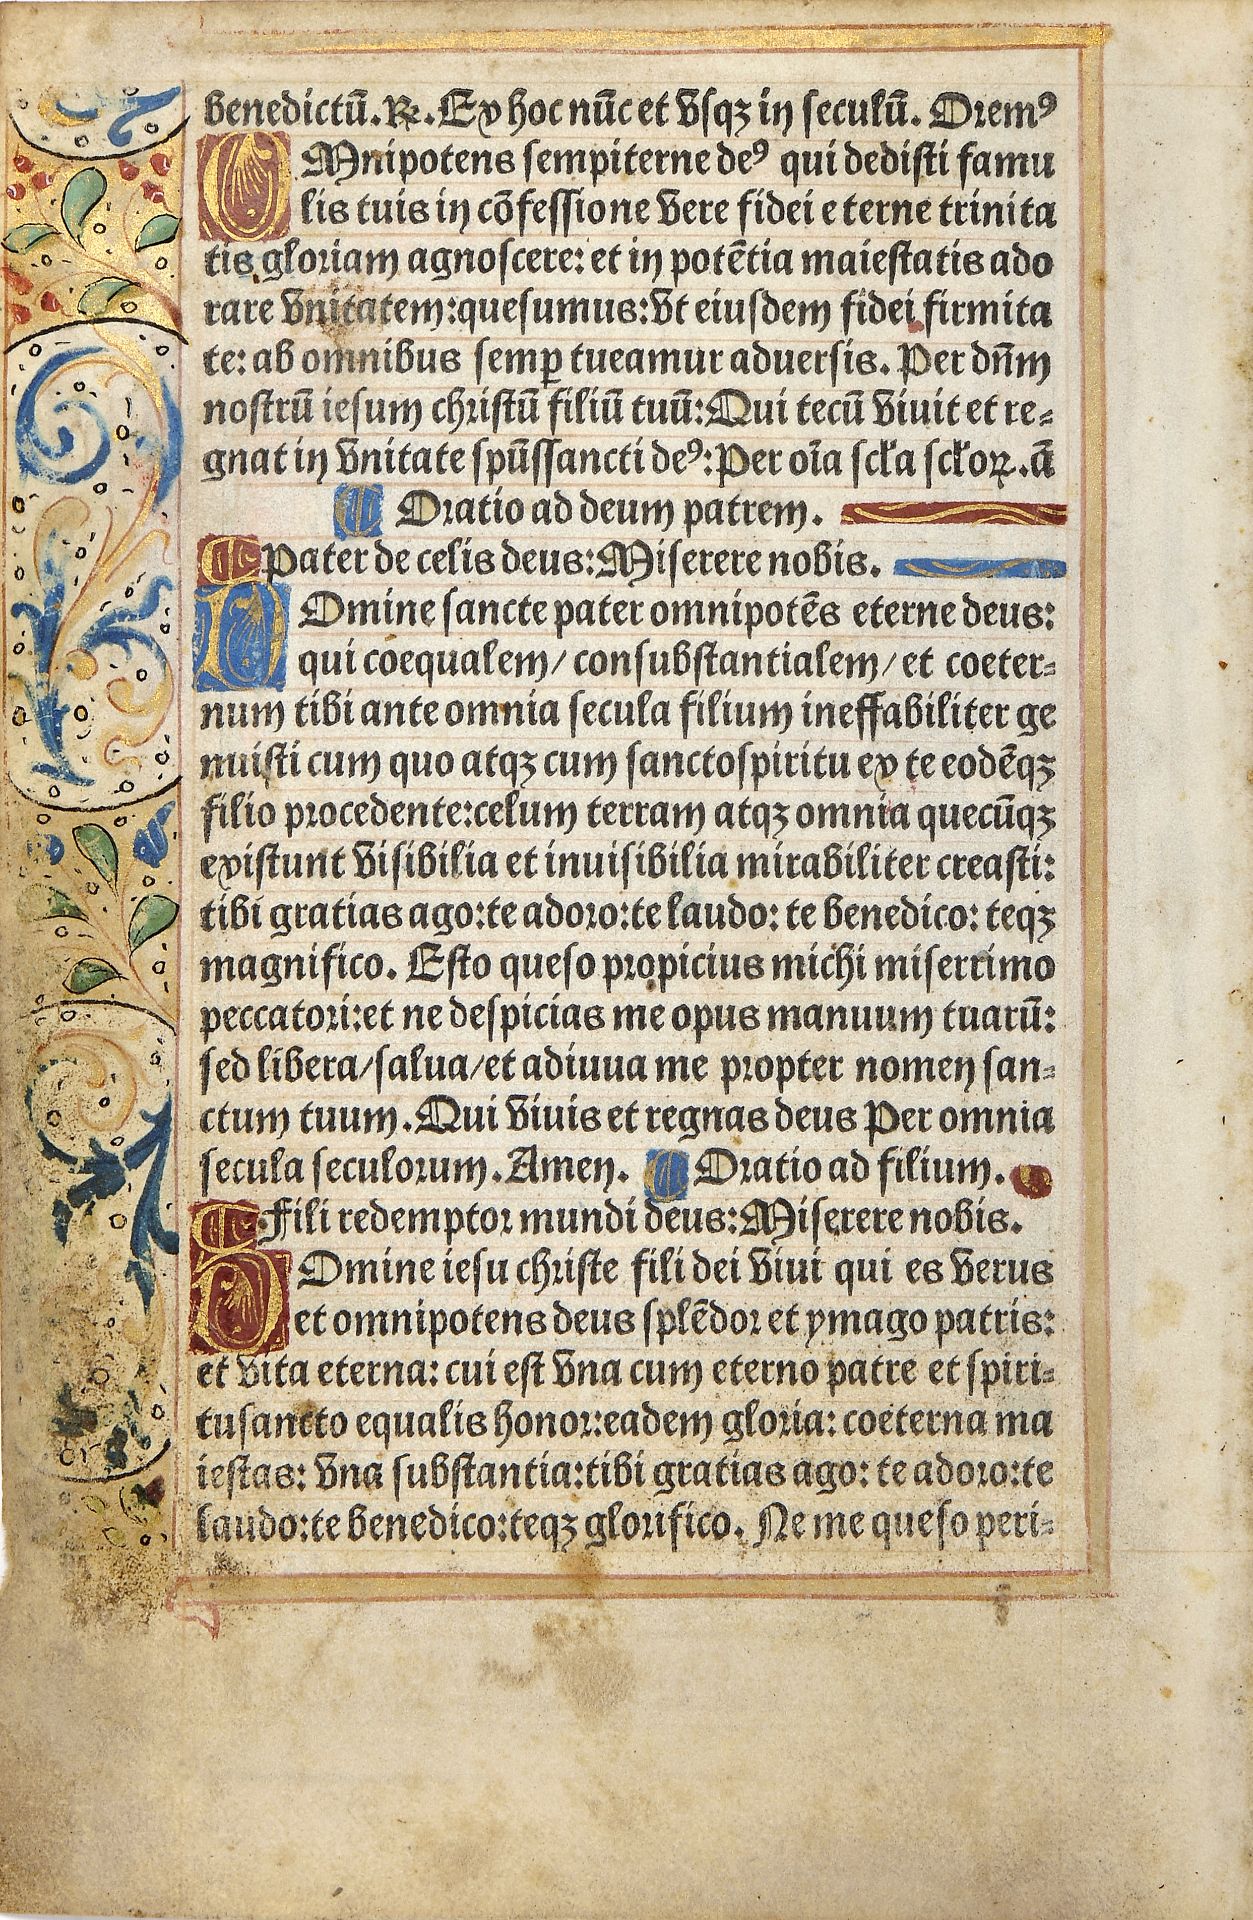 benedictū. ℟. Ex hoc nūc et vſqꝫ in ſeculū. Oremꝰ
OMnipotens ſempiterne deꝰ qui dediſti famu
lis tuis in cōfeſſione vere fidei eterne trinita
tis gloriam agnoſcere: et in potētia maieſtatis ado
rare vnitatem: queſumus: vt eiuſdem fidei firmita
te: ab omnibus ſemꝑ tueamur aduerſis. Per dn̄m
noſtrū ieſum chriſtū filiū tuū: Qui tecū viuit et re⸗
gnat in vnitate ſpūſſancti deꝰ: Per oīa ſcła ſcłoꝝ. ā
C Oratio ad deum patrem.
C Pater de celis deus: Miſerere nobis.
DOmine ſancte pater omnipotēs eterne deus:
qui coequalem/ conſubſtantialem/ et coeter⸗
num tibi ante omnia ſecula filium ineffabiliter ge
nuiſti cum quo atqꝫ cum ſanctoſpiritu ex te eodēqꝫ
filio procedente: celum terram atqꝫ omnia quecūqꝫ
exiſtunt viſibilia et inuiſibilia mirabiliter creaſti:
tibi gratias ago: te adoro: te laudo: te benedico: teqꝫ
magnifico. Eſto queſo propicius michi miſerrimo
peccatori: et ne deſpicias me opus manuum tuarū:
ſed libera/ ſalua/ et adiuua me propter nomen ſan⸗
ctum tuum. Qui viuis et regnas deus Per omnia
ſecula ſeculorum. Amen. C Oratio ad filium.
C Fili redemptor mundi deus: Miſerere nobis.
DOmine ieſu chriſte fili dei viui qui es verus
et omnipotens deus ſplēdor et ymago patris:
et vita eterna: cui eſt vna cum eterno patre et ſpiri⸗
tuſancto equalis honor: eadem gloria: coeterna ma
ieſtas: vna ſubſtantia: tibi gratias ago: te adoro: te
laudo: te benedico: teqꝫ glorifico. Ne me queſo peri⸗